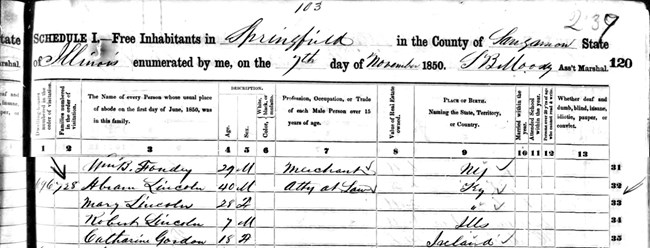 103
239
SCHEDULE I.—Free Inhabitants in Springfield in the County of Sangamon State
of Illinois enumerated by me, on the 7th day of November 1850. S B Moody Ass't Marshal. 120
tate
arshal.
Dwelling-houses numbered in the order of visitation.
Families numbered in the order of visitation.
The Name of every Person whose usual place of abode on the first day of June, 1850, was in this family.
DESCRIPTION.
Age.
Sex.
Color, White, black, or mulatto.
Profession, Occupation, or Trade of each Male Person over 15 years of age.
Value of Real Estate owned.
PLACE OF BIRTH.
Naming the State, Territory, or Country.
Married within the year.
Attended School within the year.
Whether deaf and dumb, blind, insane, idiotic, pauper, or convict.
1 2 3 4 5 6 7 8 9 10 11 12 13
Wm B. Fondey 29 M Merchant NY 31
728 Abram Lincoln 40 M Atty at Law Ky 32
Mary Lincoln 28 F " 33
Robert Lincoln 7 M Ills 34
Catharine Gordon 18 F Ireland 35